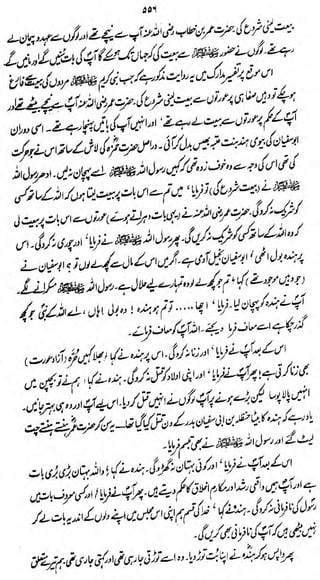 ۵۵۶
بیعت لینی شروع کی۔ حضرت عمر بن خطاب رضی اللہ عنہ آپ سے نیچے تھے اور لوگوں سے عہد و پیمان لے
رہے تھے۔ لوگوں نے حضور ﷺ سے بیعت کی کہ جہاں تک ہو سکے گا آپ کی بات سنیں گے اور مانیں گے۔
اس موقع پر تفسیر مدارک میں یہ روایت مذکور ہے کہ جب نبی کریم ﷺ مردوں کی بیعت سے فارغ
ہو چکے تو وہیں صفا ہی پر عورتوں سے بیعت لینی شروع کی۔ حضرت عمر رضی اللہ عنہ آپ سے نیچے بیٹھے تھے اور
آپ کے حکم پر عورتوں سے بیعت لے رہے تھے، اور انہیں آپ کی باتیں پہنچا رہے تھے۔ اسی دوران
ابو سفیان کی بیوی ہند بنت عتبہ بھیس بدل کر آئی۔ دراصل حضرت حمزہ کی لاش کے ساتھ اس نے جو حرکت
کی تھی اس کی وجہ سے وہ خوف زدہ تھی کہ کہیں رسول اللہ ﷺ اسے پہچان نہ لیں۔ ادھر رسول اللہ
ﷺ نے (بیعت شروع کی) تو فرمایا، میں تم سے اس بات پر بیعت لیتا ہوں کہ اللہ کے ساتھ کسی
کو شریک نہ کرو گی۔ حضرت عمر رضی اللہ عنہ نے (یہی بات دہراتے ہوئے) عورتوں سے اس بات پر بیعت لی
کہ وہ اللہ کے ساتھ کسی کو شریک نہ کریں گی۔ پھر رسول اللہ ﷺ نے فرمایا، اور چوری نہ کرو گی۔
اس پر ہندہ بول اٹھی، ابو سفیان بخیل آدمی ہے۔ اگر میں اس کے مال سے کچھ لے لوں تو؟ ابو سفیان نے
(جو وہیں موجود تھے) کہا، تم جو کچھ لے لو وہ تمہارے لیے حلال ہے۔ رسول اللہ ﷺ مسکرانے لگے۔
آپ نے ہندہ کو پہچان لیا۔ فرمایا، اچھا.... تو تم ہو ہندہ! وہ بولی، ہاں، اے اللہ کے نبی جو کچھ
گذر چکا ہے اسے معاف فرما دیجئے۔ اللہ آپ کو معاف فرمائے۔
اس کے بعد آپ نے فرمایا، اور زنا نہ کرو گی۔ اس پر ہندہ نے کہا، بھلا کہیں حُرّہ (آزاد عورت)
بھی زنا کرتی ہے! پھر آپ نے فرمایا، اور اپنی اولاد کو قتل نہ کرو گی۔ ہندہ نے کہا، ہم نے تو بچپن میں
انہیں پالا پوسا لیکن بڑے ہونے پر آپ لوگوں نے انہیں قتل کر دیا۔ اس لیے آپ اور وہ ہی بہتر جانیں۔
یاد رہے کہ ہندہ کا بیٹا حنظلہ بن ابی سفیان بدر کے دن قتل کیا گیا تھا۔ یہ سن کر حضرت عمر ہنستے ہنستے چت
لیٹ گئے اور رسول اللہ ﷺ نے بھی تبسم فرمایا۔
اس کے بعد آپ نے فرمایا، اور کوئی بہتان نہ گھڑو گی۔ ہندہ نے کہا، واللہ بہتان بڑی بری بات
ہے اور آپ ہمیں واقعی رشد اور مکارم اخلاق کا حکم دیتے ہیں۔ پھر آپ نے فرمایا، اور کسی معروف بات میں
رسول کی نافرمانی نہ کرو گی۔ ہندہ نے کہا، خدا کی قسم ہم اپنی اس مجلس میں اپنے دلوں کے اندر یہ بات لے کر
نہیں بیٹھی ہیں کہ آپ کی نافرمانی بھی کریں گی۔
پھر واپس ہو کر ہندہ نے اپنا بت توڑ دیا۔ وہ اسے توڑتی جا رہی تھی اور کہتی جا رہی تھی، ہم تیرے متعلق